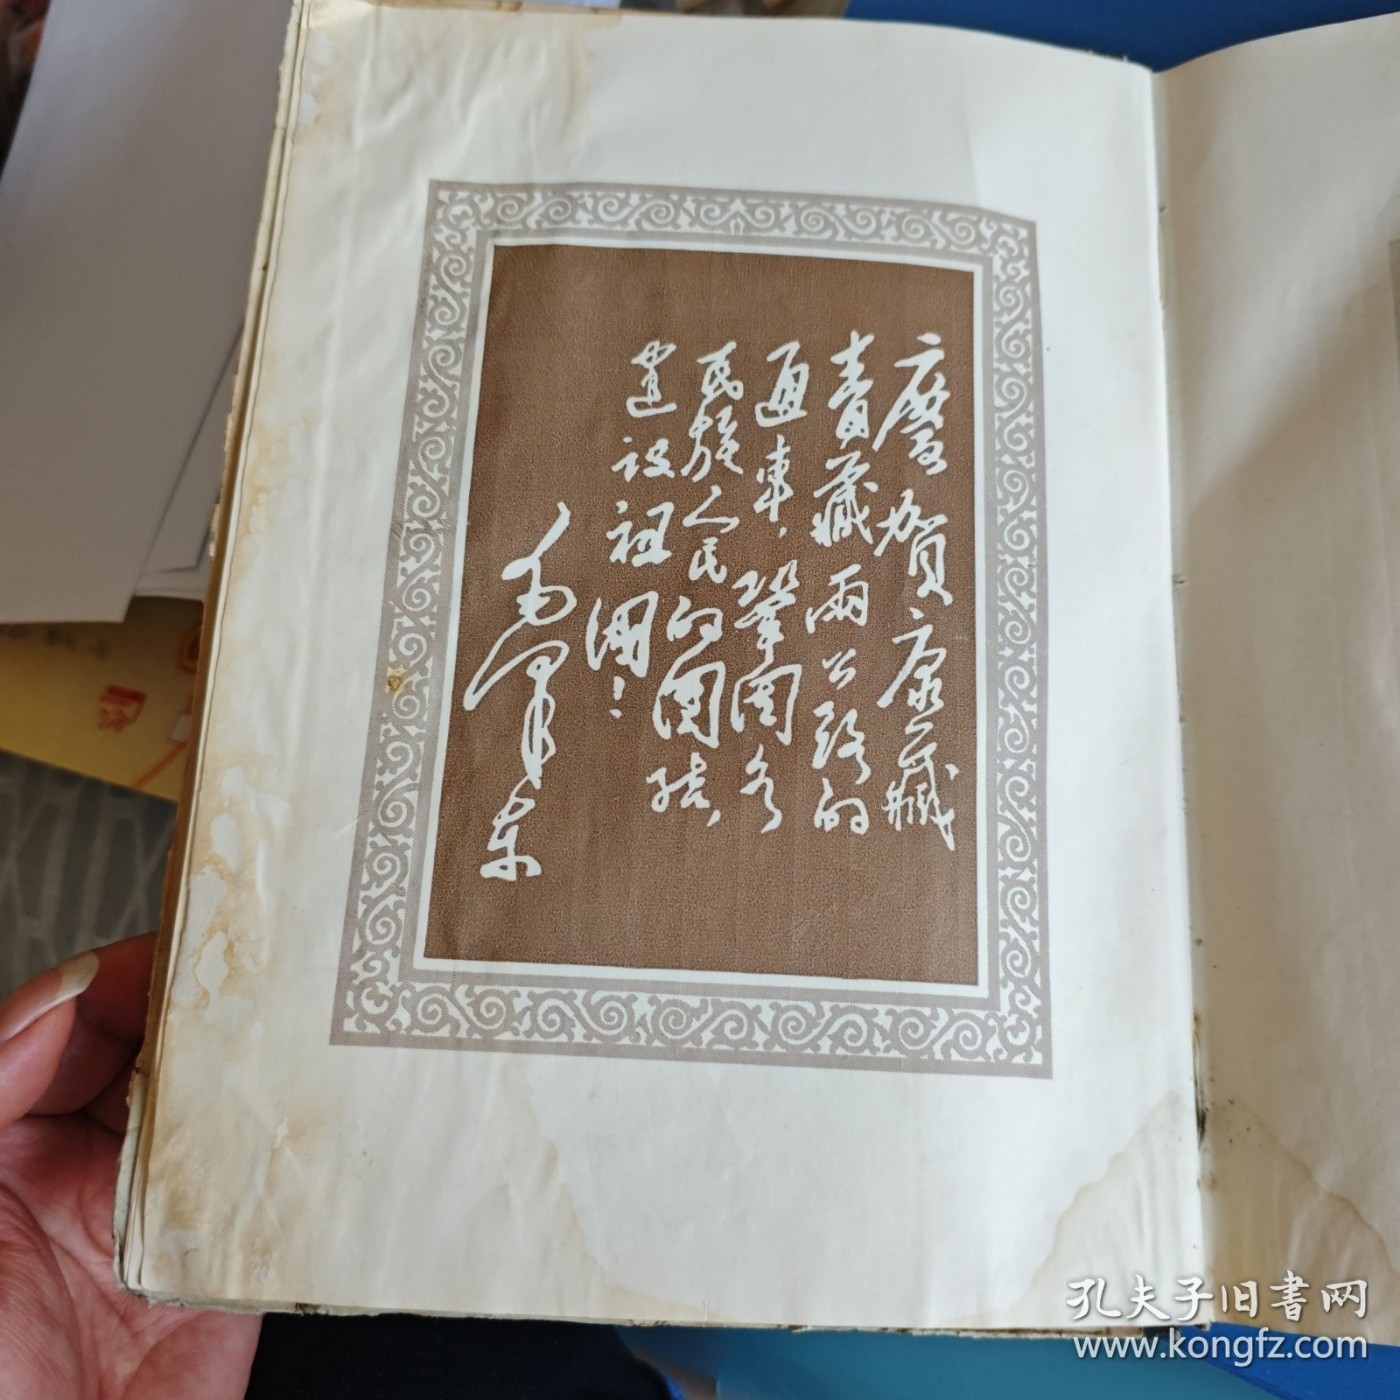 慶賀康藏
青藏兩公路的
通車，鞏固各
民族人民的團結，
建設祖國！
毛澤東
孔夫子旧书网
www.kongfz.com